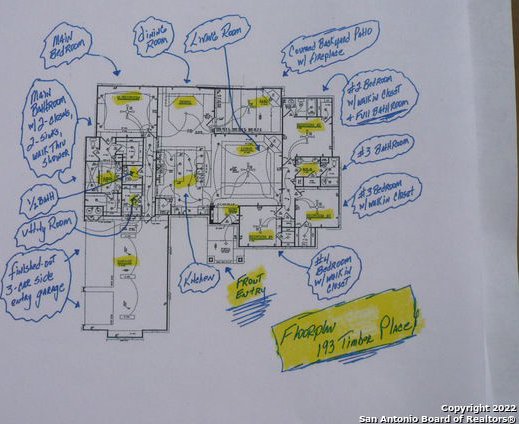 Main
Bedroom
Dining
Room
Living Room
Covered Backyard Patio
w/ Fireplace
Main
Bathroom
w/ 2-closets,
2-sinks,
walk thru
shower
#2 Bedroom
w/ walkin closet
& Full Bathroom
#3 Bathroom
#3 Bedroom
w/ walkin closet
1/2 Bath
Utility Room
Finished-out
3-car side
entry garage
Kitchen
Front
Entry
#4
Bedroom
w/ walkin
closet
Floorplan
193 Timber Place
Copyright 2022
San Antonio Board of Realtors®